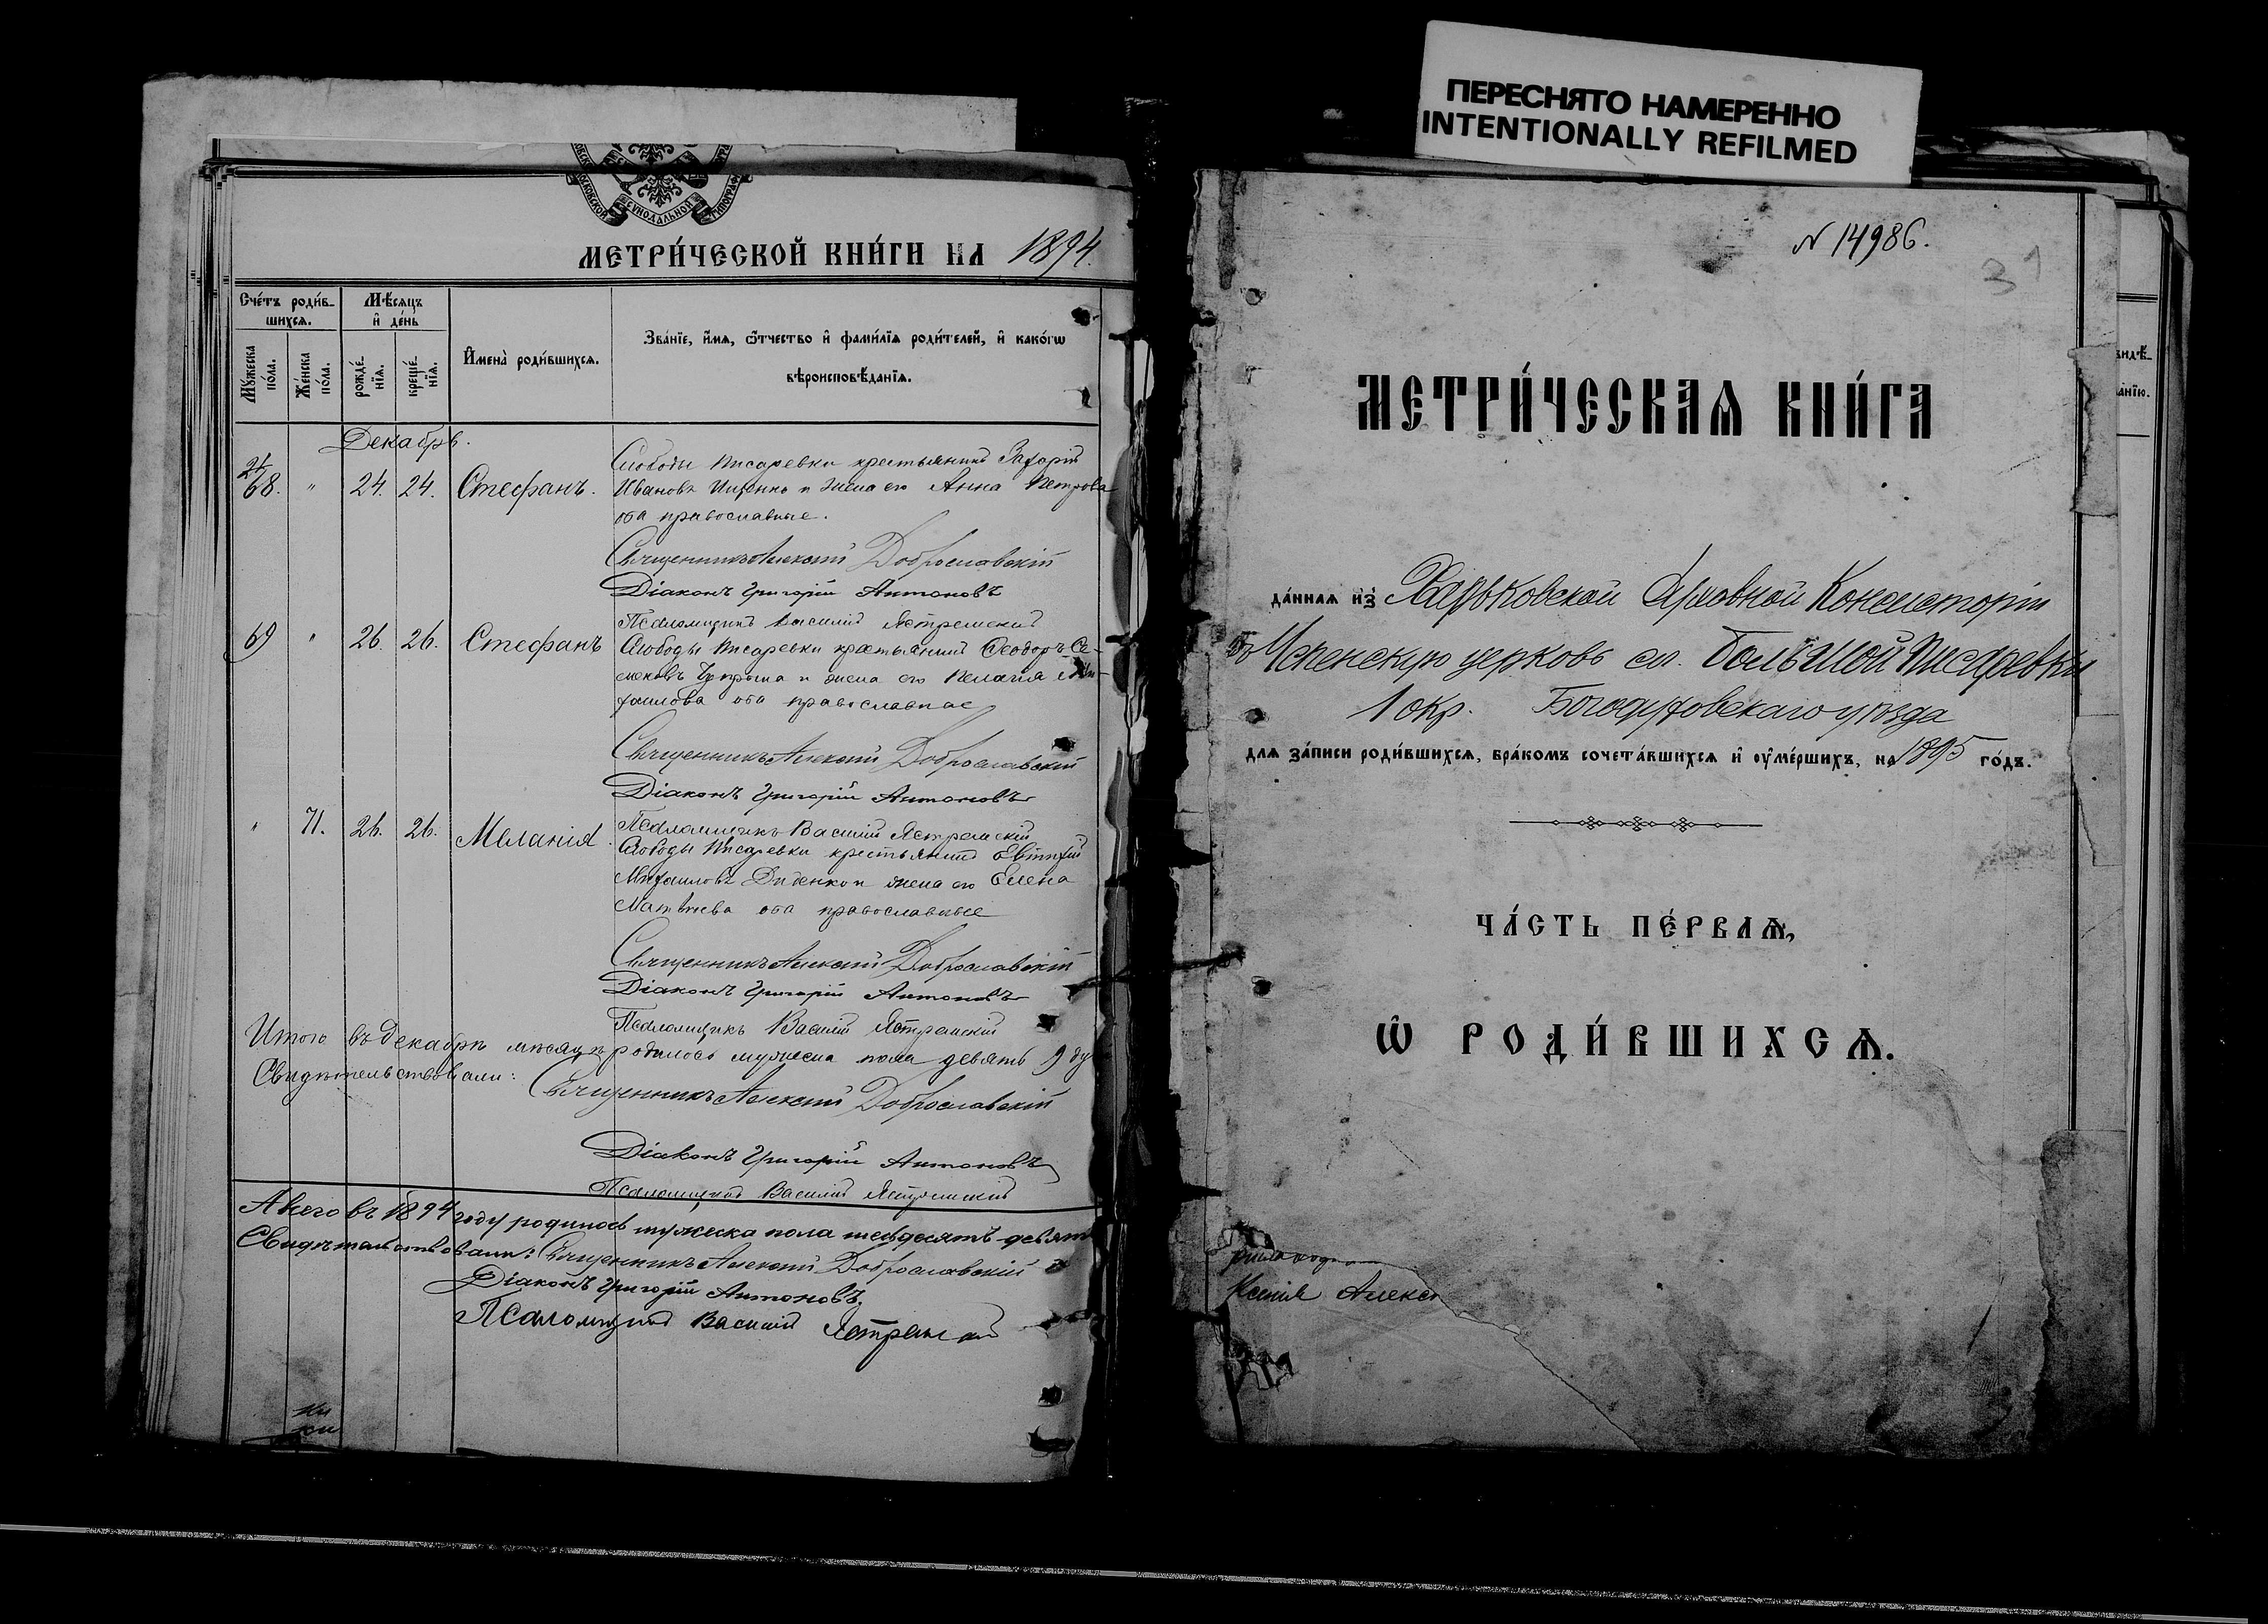 ПЕРЕСНЯТО НАМЕРЕННО
INTENTIONALLY REFILMED
МОСКОВСКОЙ СѴНОДАЛЬНОЙ ТИПОГРАФ
МЕТРИ́ЧЕСКОЙ КНИ́ГИ НА 1894.
Сче́тъ роди́в-
шихсѧ.
Мѣ́сѧцъ
и҆ де́нь
Мꙋ́жеска по́ла.
Же́нска по́ла.
рожде́-нїѧ.
креще́-нїѧ.
И҆мена̀ роди́вшихсѧ.
Зва́нїе, и҆́мѧ, ѻ҆́тчество и҆ фами́лїѧ роди́телей, и҆ како́гѡ
вѣроисповѣ́данїѧ.
Декабрь.
68. " 24. 24. Стефанъ.
Слободы Писаревки крестьянинъ Захарій
Ивановъ Ищенко и жена его Анна Петрова
оба православные.
Священникъ Алексій Доброславскій
Діаконъ Григорій Антоновъ
Псаломщикъ Василій Ястремскій
69 " 26. 26. Стефанъ
Слободы Писаревки крестьянинъ Ѳеодоръ Се-
меновъ и жена его Пелагія Ми-
хаилова оба православные
Священникъ Алексій Доброславскій
Діаконъ Григорій Антоновъ
Псаломщикъ Василій Ястремскій
" 71. 26. 26. Меланія.
Слободы Писаревки крестьянинъ Евтихій
Михаиловъ Диденко и жена его Елена
Матѳѣева оба православные
Священникъ Алексій Доброславскій
Діаконъ Григорій Антоновъ
Псаломщикъ Василій Ястремскій
Итого въ Декабрѣ мѣсяцѣ родилось мужеска пола девять 9 ду
Свидѣтельствовали:
Священникъ Алексій Доброславскій
Діаконъ Григорій Антоновъ
Псаломщикъ Василій Ястремскій
А всего въ 1894 году родилось мужеска пола шесдесятъ девять
Свидѣтельствовали: Священникъ Алексій Доброславскій
Діаконъ Григорій Антоновъ.
Псаломщикъ Василій Ястремскій
N 14986.
31
МЕТРИ́ЧЕСКАѦ КНИ́ГА
да́ннаѧ и҆з̾ Харьковской Духовной Консисторіи
въ Успенскую церковь сл. Большой Писаревки
1 окр. Богодуховскаго уѣзда
длѧ за́писи роди́вшихсѧ, бра́комъ сочета́вшихсѧ и҆ ᲂу҆ме́ршихъ, на 1895 го́дъ.
ЧА́СТЬ ПЕ́РВАѦ,
Ѡ҆ РОДИ́ВШИХСѦ.
Ксенія Алекс
видѣ-
анїю.